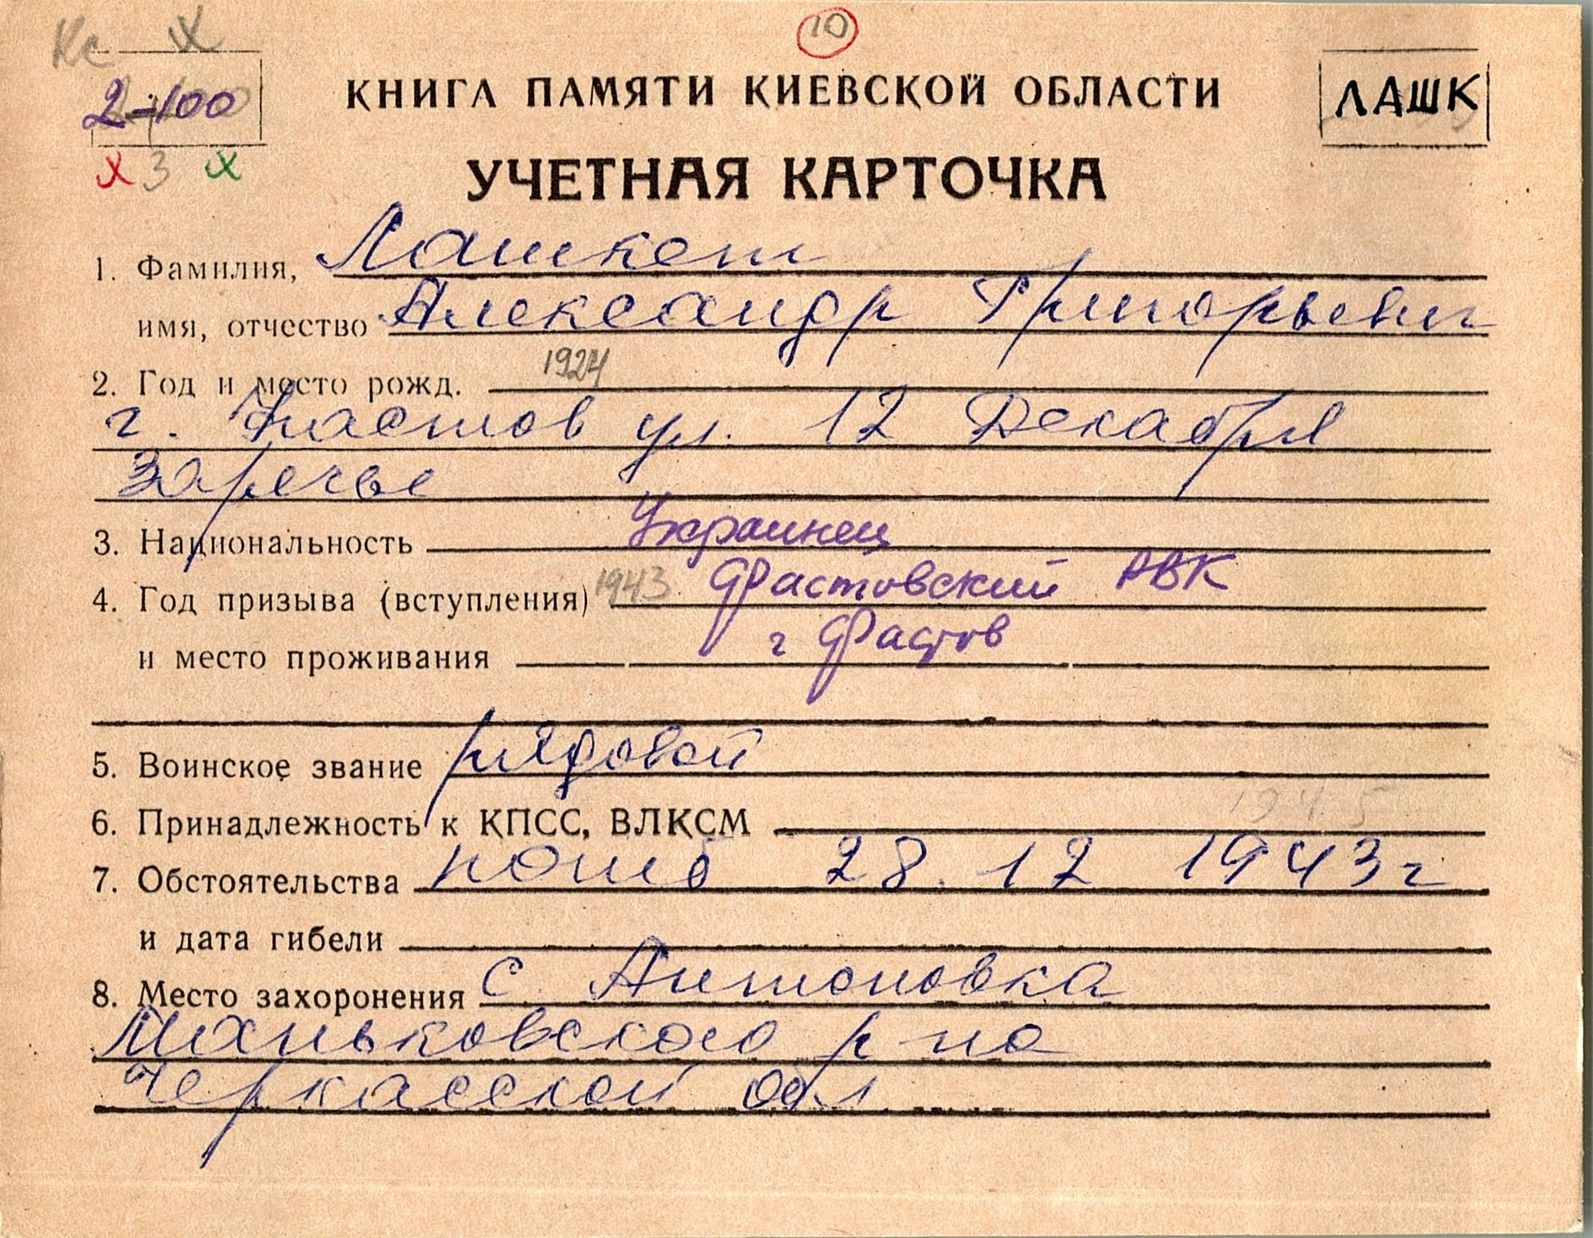 Кс X
10
2-100
КНИГА ПАМЯТИ КИЕВСКОЙ ОБЛАСТИ
ЛАШК
х 3 х
УЧЕТНАЯ КАРТОЧКА
1. Фамилия, Лашкет
имя, отчество Александр Григорьевич
2. Год и место рожд. 1924
г. Фастов ул. 12 Декабря
Заречье
3. Национальность Украинец
4. Год призыва (вступления) 1943 Фастовский РВК
и место проживания г Фастов
5. Воинское звание рядовой
6. Принадлежность к КПСС, ВЛКСМ 1945
7. Обстоятельства погиб 28.12 1943г
и дата гибели
8. Место захоронения с. Антоновка
р-на
Черкасской обл